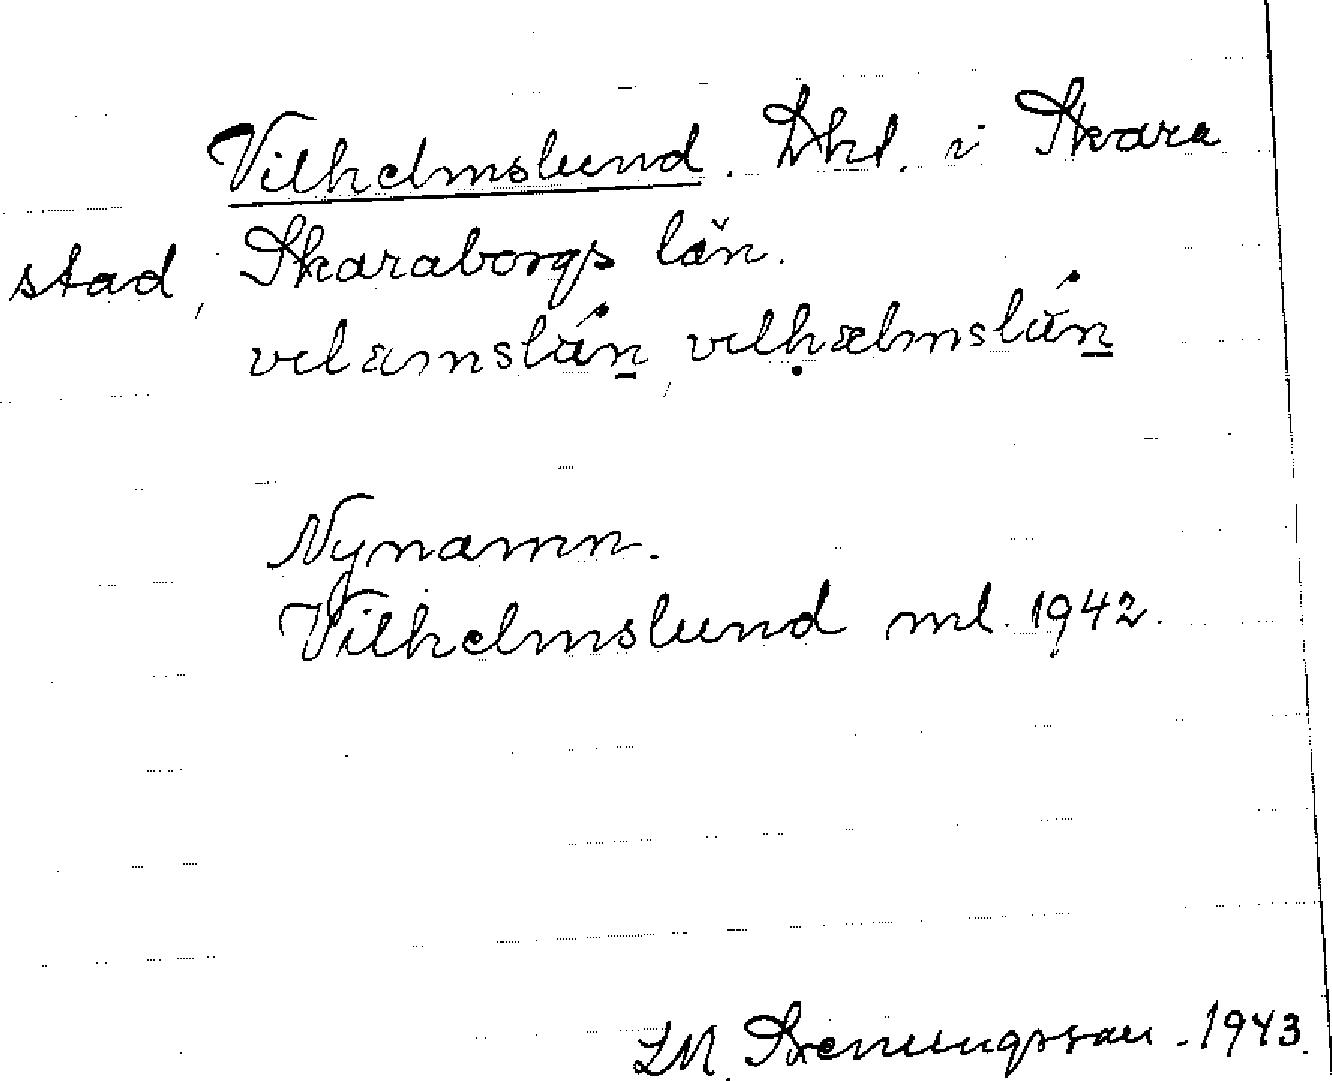 Vilhelmslund. Lhl. i Skara
stad, Skaraborgs län.
velæmslún, velhælmslún
Nynamn.
Vilhelmslund ml. 1942.
1943.